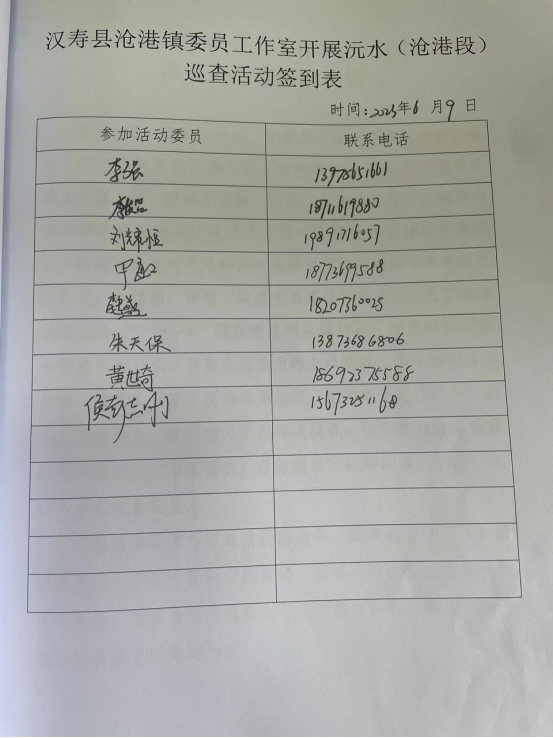 汉寿县沧港镇委员工作室开展沅水（沧港段）
巡查活动签到表
时间:2023年6月9日
参加活动委员 联系电话
李强 13975651661
18711619880
刘锦恒 19891716057
18773699588
18207360025
朱天保 13873686806
黄世奇 18692375588
15673251168